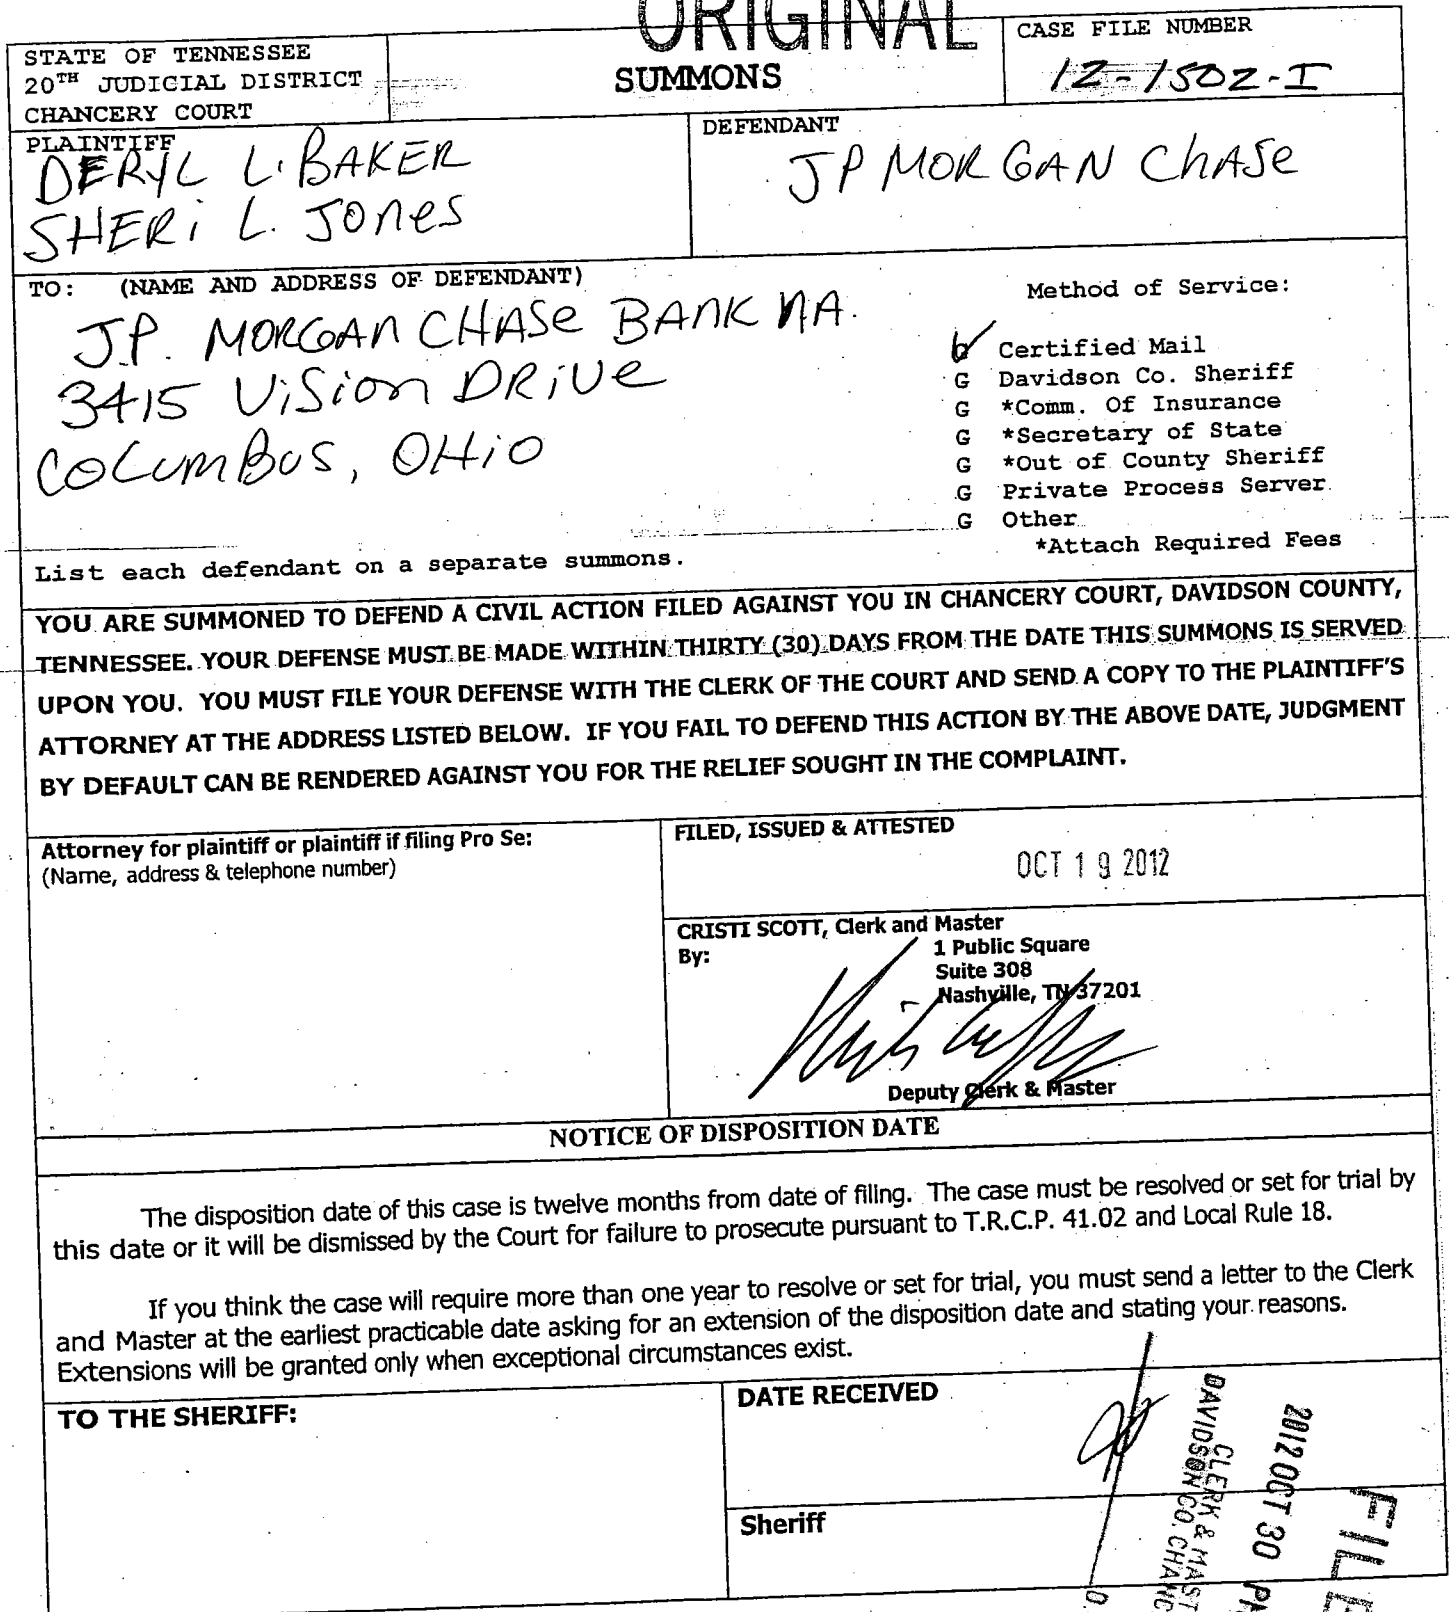 ORIGINAL
STATE OF TENNESSEE
20TH JUDICIAL DISTRICT
CHANCERY COURT
SUMMONS
CASE FILE NUMBER
12-1502-I
PLAINTIFF
DERYL L. BAKER
SHERi L. JOnes
DEFENDANT
JP MORGAN ChASe
TO: (NAME AND ADDRESS OF DEFENDANT)
J.P. MORGAN CHASe BANK NA.
3415 ViSion DRiVe
COLumBUS, OHiO
Method of Service:
Certified Mail
G Davidson Co. Sheriff
G *Comm. Of Insurance
G *Secretary of State
G *Out of County Sheriff
G Private Process Server
G Other
*Attach Required Fees
List each defendant on a separate summons.
YOU ARE SUMMONED TO DEFEND A CIVIL ACTION FILED AGAINST YOU IN CHANCERY COURT, DAVIDSON COUNTY,
TENNESSEE. YOUR DEFENSE MUST BE MADE WITHIN THIRTY (30) DAYS FROM THE DATE THIS SUMMONS IS SERVED
UPON YOU. YOU MUST FILE YOUR DEFENSE WITH THE CLERK OF THE COURT AND SEND A COPY TO THE PLAINTIFF'S
ATTORNEY AT THE ADDRESS LISTED BELOW. IF YOU FAIL TO DEFEND THIS ACTION BY THE ABOVE DATE, JUDGMENT
BY DEFAULT CAN BE RENDERED AGAINST YOU FOR THE RELIEF SOUGHT IN THE COMPLAINT.
Attorney for plaintiff or plaintiff if filing Pro Se:
(Name, address & telephone number)
FILED, ISSUED & ATTESTED
OCT 19 2012
CRISTI SCOTT, Clerk and Master
By:
1 Public Square
Suite 308
Nashville, TN 37201
Deputy Clerk & Master
NOTICE OF DISPOSITION DATE
The disposition date of this case is twelve months from date of filing. The case must be resolved or set for trial by
this date or it will be dismissed by the Court for failure to prosecute pursuant to T.R.C.P. 41.02 and Local Rule 18.
If you think the case will require more than one year to resolve or set for trial, you must send a letter to the Clerk
and Master at the earliest practicable date asking for an extension of the disposition date and stating your reasons.
Extensions will be granted only when exceptional circumstances exist.
TO THE SHERIFF:
DATE RECEIVED
Sheriff
FILE
2012 OCT 30 P
CLERK & MAST
DAVIDSON CO. CHANC